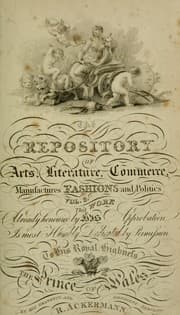 The
REPOSITORY
OF
Arts, Literature, Commerce,
Manufactures FASHIONS and Politics
VOL.
THE WORK
Already honoured by HIS Approbation
Is most Humbly Dedicated by Permission
To His Royal Highness
The Prince of Wales
R. ACKERMANN.